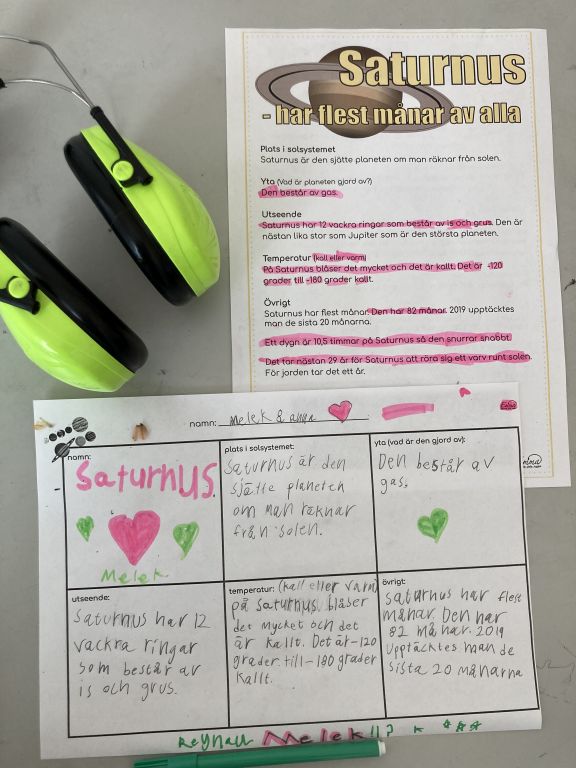 Saturnus
- har flest månar av alla
Plats i solsystemet
Saturnus är den sjätte planeten om man räknar från solen.
Yta (Vad är planeten gjord av?)
Den består av gas.
Utseende
Saturnus har 12 vackra ringar som består av is och grus. Den är
nästan lika stor som Jupiter som är den största planeten.
Temperatur (kall eller varm)
På Saturnus blåser det mycket och det är kallt. Det är -120
grader till -180 grader kallt.
Övrigt
Saturnus har flest månar. Den har 82 månar. 2019 upptäcktes
man de sista 20 månarna.
Ett dygn är 10,5 timmar på Saturnus så den snurrar snabbt.
Det tar nästan 29 år för Saturnus att röra sig ett varv runt solen.
För jorden tar det ett år.
namn: Melek &
namn:
Saturnus
Melek
plats i solsystemet:
Saturnus är den
sjätte planeten
om man räknar
från solen.
yta (vad är den gjord av):
Den består av
gas.
utseende:
Saturnus har 12
vackra ringar
som består av
is och grus.
temperatur: (kall eller varm)
på Saturnus blåser
det mycket och det
är kallt. Det är -120
grader till -180 grader
kallt.
övrigt:
Saturnus har flest
månar. Den har
82 månar. 2019
upptäcktes man de
sista 20 månarna
Melek